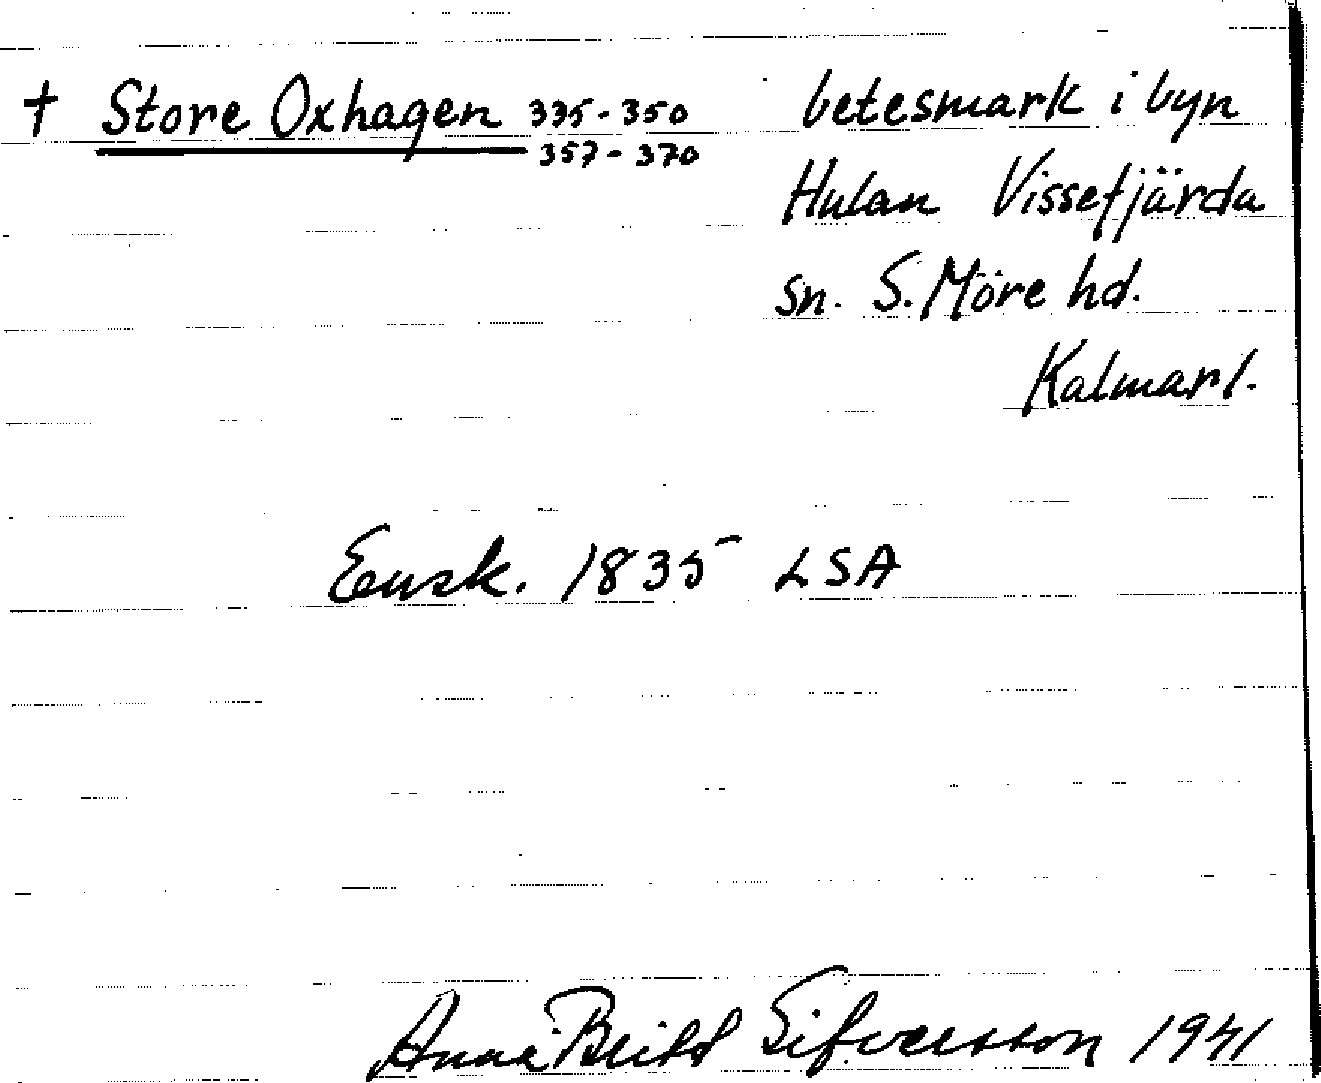 † Store Oxhagen 335-350 betesmark i byn
357-370
Hulan Vissefjärda
sn. S. Möre hd.
Kalmar l.
Ensk. 1835 LSA
Anna Britt Sifversson 1941